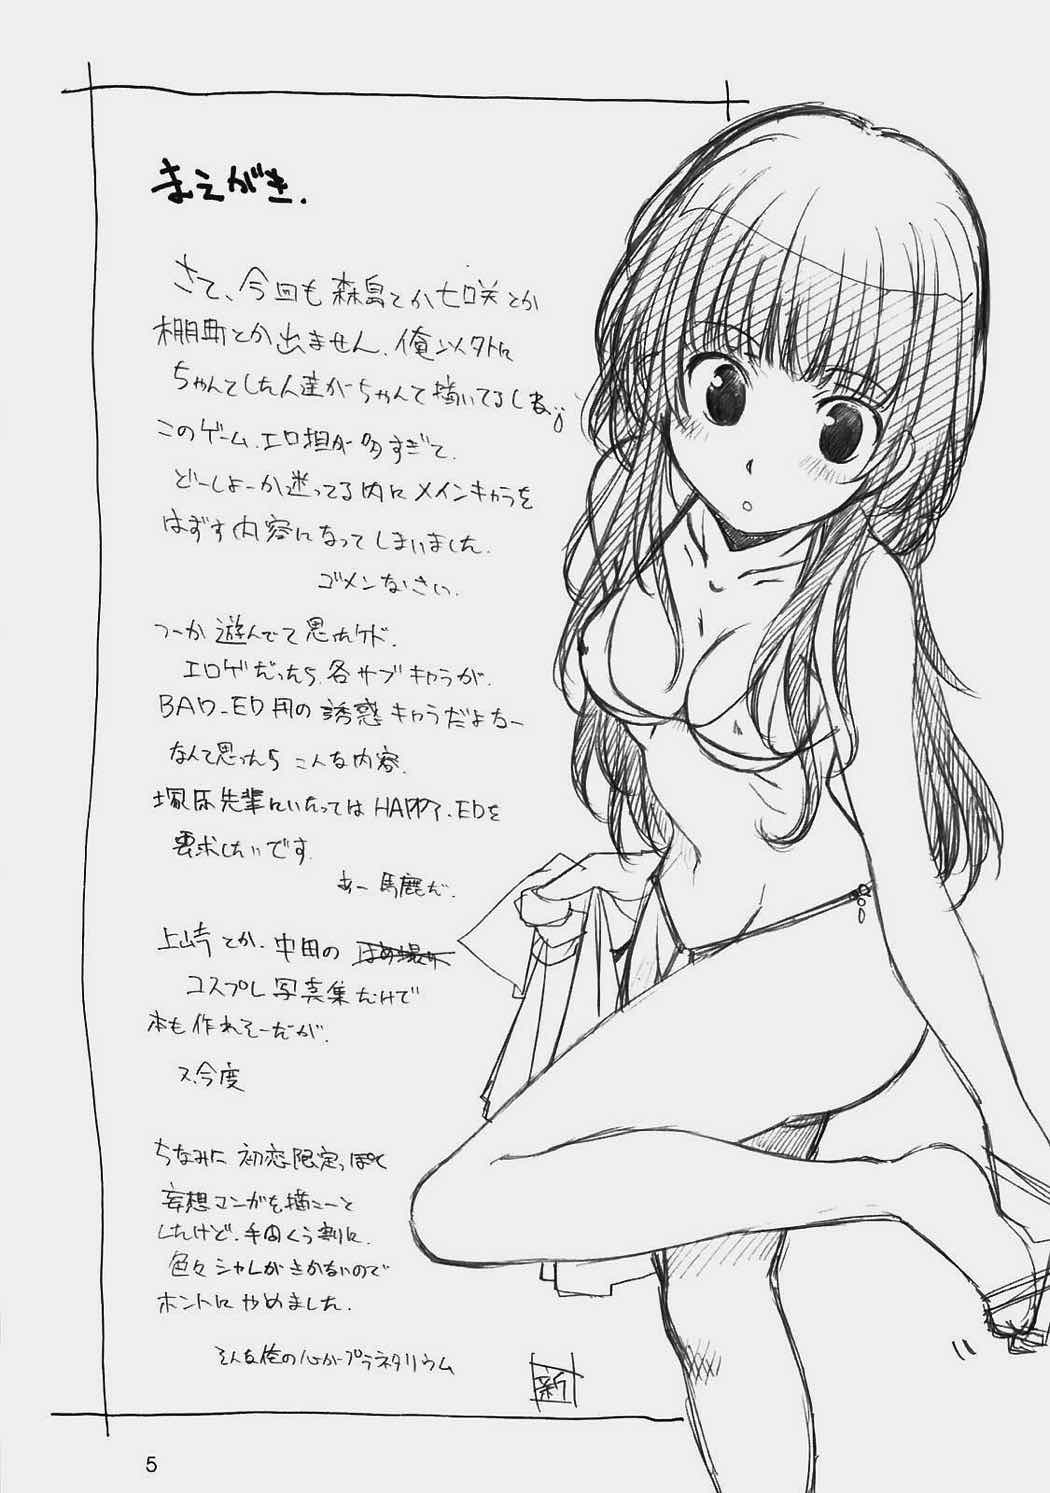 まえがき.
さて、今回も森島とか七咲とか
棚町とか出ません.俺以外に
ちゃんとした人達がちゃんて描いてるしね
このゲーム.エロ担が多すぎて.
どーしよーか迷ってる内にメインキャラを
はずす内容になってしまいました.
ゴメンなさい.
つーか遊んでて思たケド.
エロゲだったら.各サブキャラが.
BAD-ED用の誘惑キャラだよなー
なんて思ったら こんな内容.
塚原先輩にいたってはHAPPY.EDを
要求したいです.
あー馬鹿だ.
上崎とか.中田の
コスプレ写真集だけで
本も作れそーだが.
ス.今度
ちなみに 初恋限定っぽく
妄想マンガを描こーと
したけど.手間くう割に.
色々シャレがきかないので
ホントにやめました.
そんな俺の心がプラネタリウム
新
5